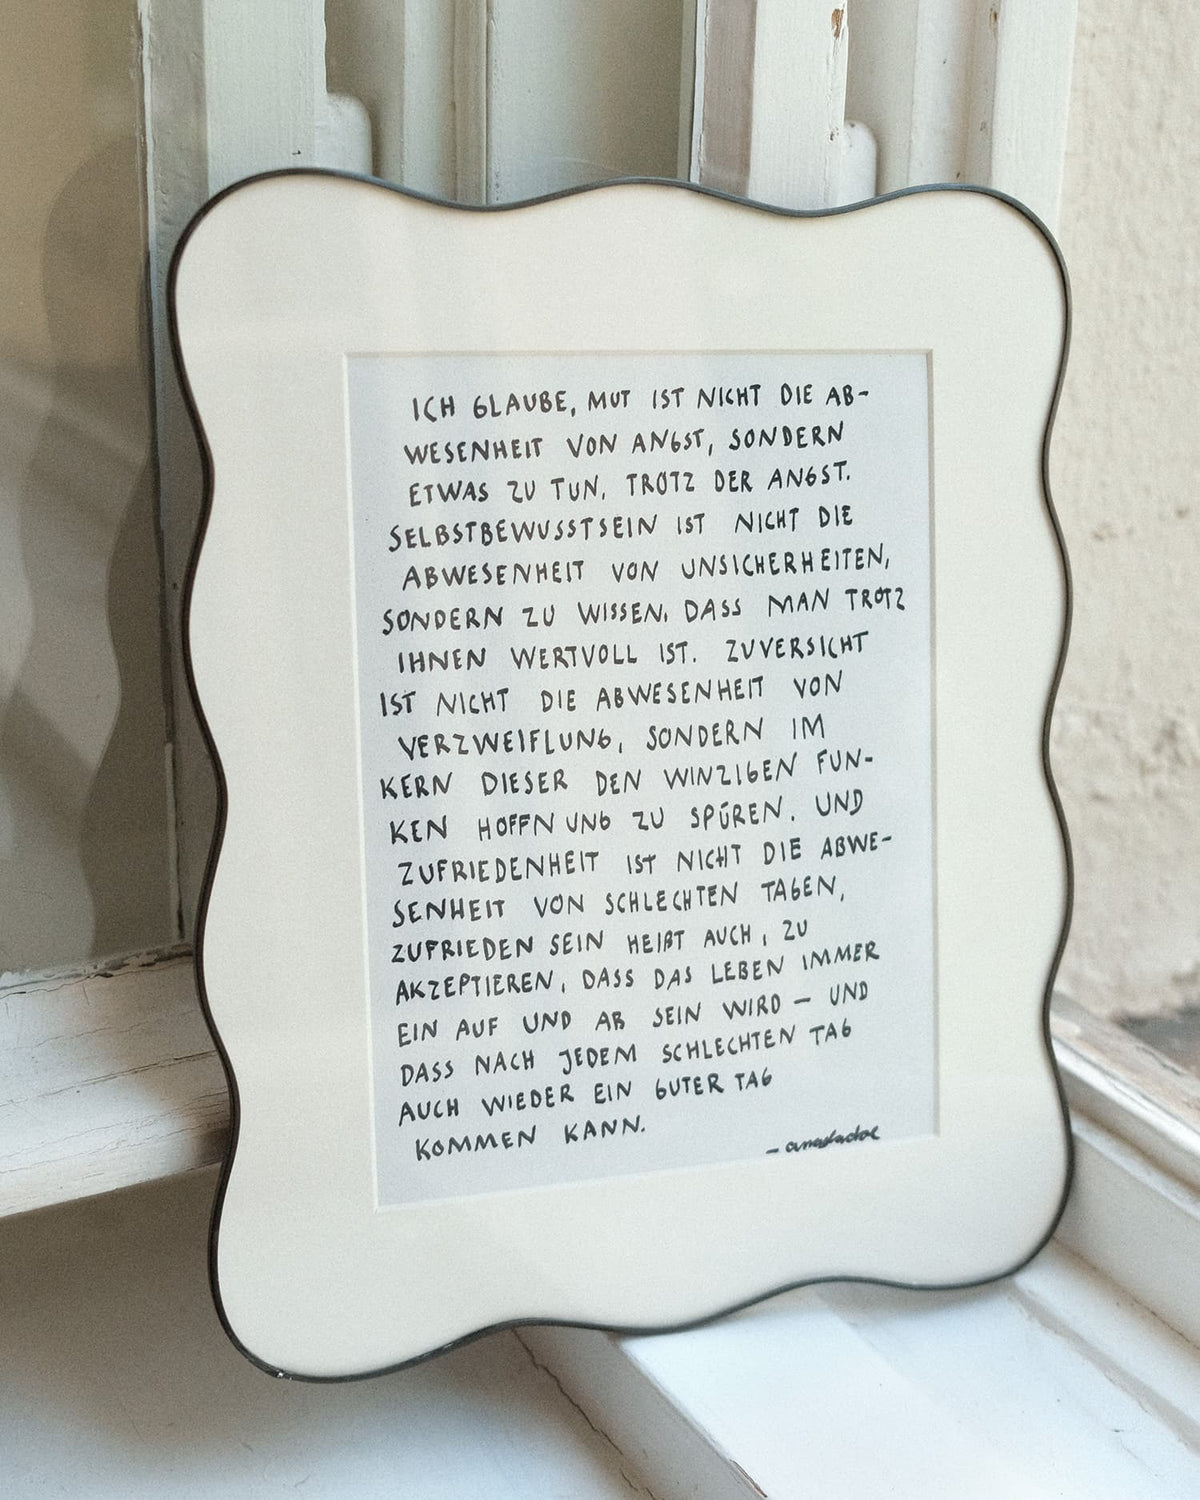 ICH GLAUBE, MUT IST NICHT DIE AB-
WESENHEIT VON ANGST, SONDERN
ETWAS ZU TUN, TROTZ DER ANGST.
SELBSTBEWUSSTSEIN IST NICHT DIE
ABWESENHEIT VON UNSICHERHEITEN,
SONDERN ZU WISSEN, DASS MAN TROTZ
IHNEN WERTVOLL IST. ZUVERSICHT
IST NICHT DIE ABWESENHEIT VON
VERZWEIFLUNG, SONDERN IM
KERN DIESER DEN WINZIGEN FUN-
KEN HOFFNUNG ZU SPÜREN. UND
ZUFRIEDENHEIT IST NICHT DIE ABWE-
SENHEIT VON SCHLECHTEN TAGEN,
ZUFRIEDEN SEIN HEIßT AUCH, ZU
AKZEPTIEREN, DASS DAS LEBEN IMMER
EIN AUF UND AB SEIN WIRD – UND
DASS NACH JEDEM SCHLECHTEN TAG
AUCH WIEDER EIN GUTER TAG
KOMMEN KANN.